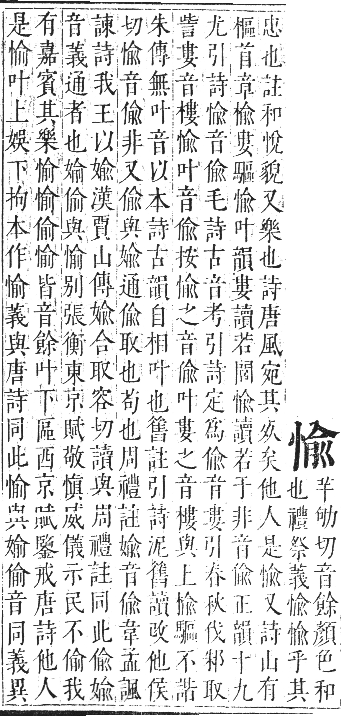 愉
羊劬切音餘顏色和
也禮祭義愉愉乎其
忠也註和悅貌又樂也詩唐風宛其死矣他人是愉又詩山有
樞首章榆婁驅愉叶韻婁讀若閭愉讀若于非音偷正韻十九
尤引詩愉音偷毛詩古音考引詩定為偷音婁引春秋伐邾取
訾婁音樓愉叶音偷按愉之音偷叶婁之音樓與上榆驅不諧
朱傳無叶音以本詩古韻自相叶也舊註引詩泥舊讀改他侯
切愉音偷非又偷與媮通偷取也苟也周禮註媮音偷韋孟諷
諫詩我王以媮漢賈山傳媮合取容切讀與周禮註同此偷媮
音義通者也媮偷與愉別張衡東京賦敬慎威儀示民不偷我
有嘉賓其樂愉愉偷愉皆音餘叶下區西京賦鑒戒唐詩他人
是愉叶上娛下拘本作愉義與唐詩同此愉與媮偷音同義異